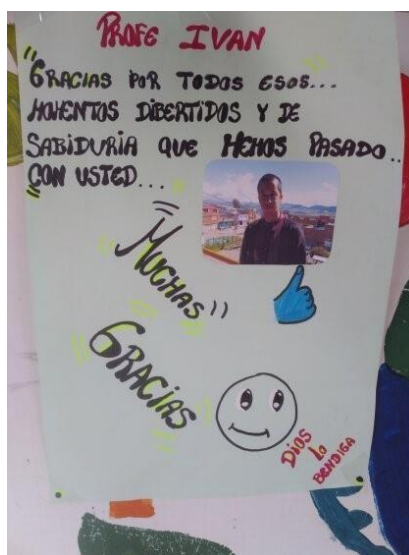 PROFE IVAN
"GRACIAS POR TODOS ESOS...
MOMENTOS DIBERTIDOS Y DE
SABIDURIA QUE HEMOS PASADO..
CON USTED...
"MUCHAS"
GRACIAS
DIOS
lo
BENDIGA